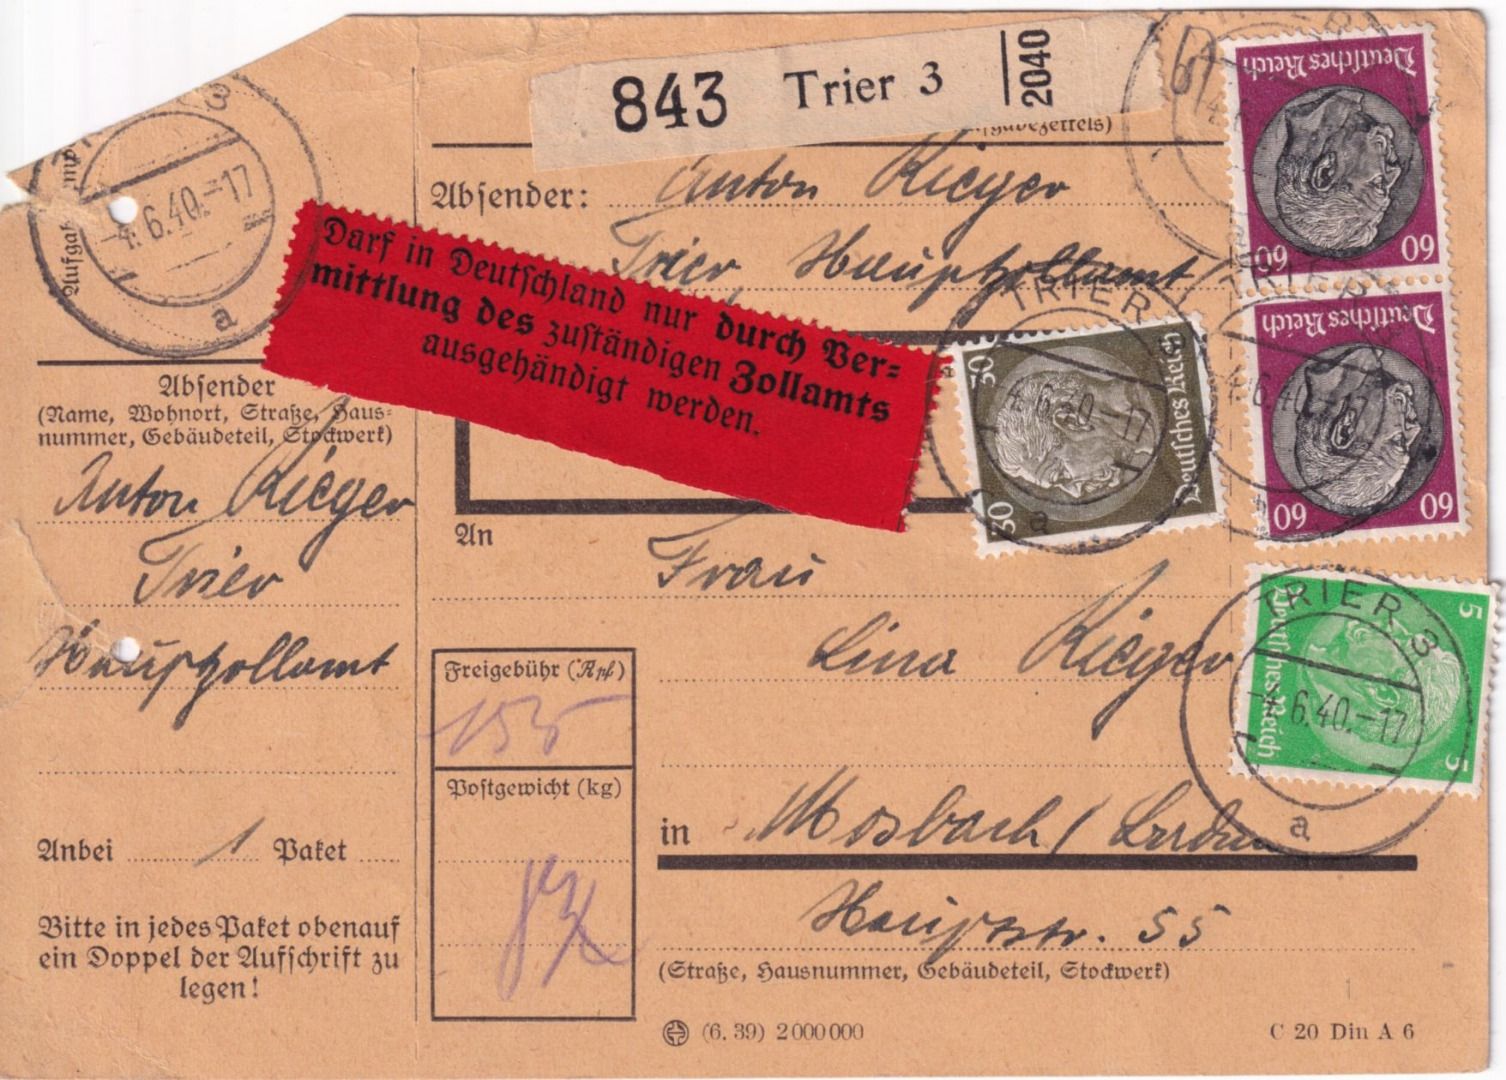 843 Trier 3 2040
Absender: Anton Rieger
Trier, Hauptzollamt
Darf in Deutschland nur durch Ver=
mittlung des zuständigen Zollamts
ausgehändigt werden.
TRIER 3
4.6.40.-17
a
Absender
(Name, Wohnort, Straße, Haus=
nummer, Gebäudeteil, Stockwerk)
Anton Rieger
Trier
Hauptzollamt
Anbei 1 Paket
Bitte in jedes Paket obenauf
ein Doppel der Aufschrift zu
legen!
An Frau
Lina Rieger
in Mosbach /
Hauptstr. 55
(Straße, Hausnummer, Gebäudeteil, Stockwerk)
Freigebühr (Rpf)
155
Postgewicht (kg)
(6. 39) 2 000 000
C 20 Din A 6
Deutsches Reich
60 60
Deutsches Reich
60 60
Deutsches Reich
30 30
Deutsches Reich
5 5
TRIER
4.6.40.-17
a
4.6.40.-17
TRIER 3
4.6.40.-17
a